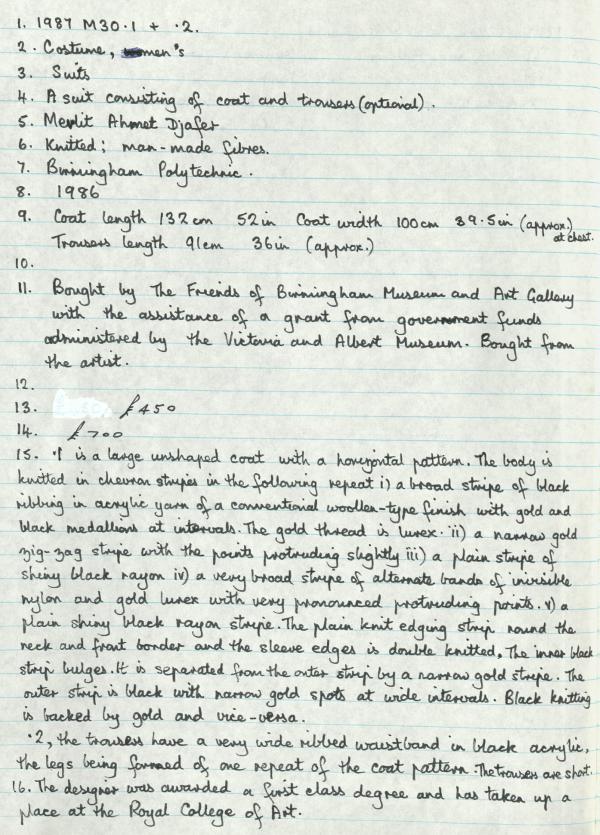 1. 1987 M30.1 + .2.
2. Costume, men's
3. Suits
4. A suit consisting of coat and trousers (optional).
5. Mevlit Ahmet Djafer
6. Knitted; man-made fibres.
7. Birmingham Polytechnic.
8. 1986
9. Coat length 132cm 52in Coat width 100cm 39.5in (approx.) at chest.
Trousers length 91cm 36in (approx.)
10.
11. Bought by The Friends of Birmingham Museum and Art Gallery
with the assistance of a grant from government funds
administered by the Victoria and Albert Museum. Bought from
the artist.
12.
13. £450
14. £700
15. .1 is a large unshaped coat with a horizontal pattern. The body is
knitted in chevron stripes in the following repeat i) a broad stripe of black
ribbing in acrylic yarn of a conventional woollen-type finish with gold and
black medallions at intervals. The gold thread is lurex. ii) a narrow gold
zig-zag stripe with the points protruding slightly iii) a plain stripe of
shiny black rayon iv) a very broad stripe of alternate bands of invisible
nylon and gold lurex with very pronounced protruding points. v) a
plain shiny black rayon stripe. The plain knit edging strip round the
neck and front border and the sleeve edges is double knitted. The inner black
strip bulges. It is separated from the outer strip by a narrow gold stripe. The
outer strip is black with narrow gold spots at wide intervals. Black knitting
is backed by gold and vice-versa.
.2, the trousers have a very wide ribbed waistband in black acrylic,
the legs being formed of one repeat of the coat pattern. The trousers are short.
16. The designer was awarded a first class degree and has taken up a
place at the Royal College of Art.